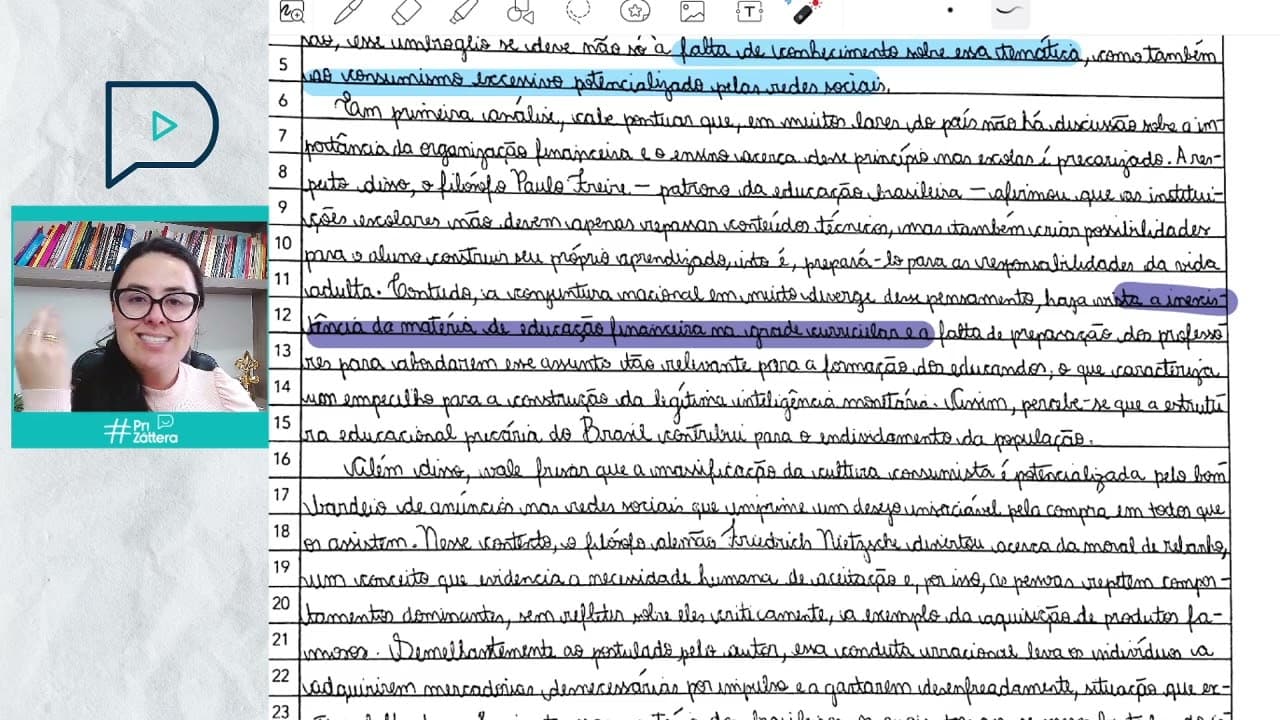 são, esse imbroglio se deve não só à falta de conhecimento sobre essa temática, como também
5 ao consumismo excessivo potencializado pelas redes sociais.
6 Em primeira análise, cabe pontuar que, em muitos lares do país não há discussão sobre a im-
7 portância da organização financeira e o ensino acerca desse princípio nas escolas é precarizado. A res-
8 peito disso, o filósofo Paulo Freire – patrono da educação brasileira – afirmou que as institui-
9 ções escolares não devem apenas repassar conteúdos técnicos, mas também criar possibilidades
10 para o aluno construir seu próprio aprendizado, isto é, prepará-lo para as responsabilidades da vida
11 adulta. Contudo, a conjuntura nacional em muito diverge desse pensamento, haja vista a inexis-
12 tência da matéria de educação financeira na grade curricular e a falta de preparação dos professo
13 res para abordarem esse assunto tão relevante para a formação dos educandos, o que caracteriza
14 um empecilho para a construção da legítima inteligência monetária. Assim, percebe-se que a estrutu
15 ra educacional precária do Brasil contribui para o endividamento da população.
16 Além disso, vale frisar que a massificação da cultura consumista é potencializada pelo bom
17 bardeio de anúncios nas redes sociais que imprime um desejo insaciável pela compra em todos que
18 os assistem. Nesse contexto, o filósofo alemão Friedrich Nietzsche dissertou acerca da moral de rebanho,
19 um conceito que evidencia a necessidade humana de aceitação e, por isso, as pessoas repetem compor-
20 tamentos dominantes, sem refletir sobre eles criticamente, a exemplo da aquisição de produtos fa-
21 mosos. Semelhantemente ao postulado pelo autor, essa conduta irracional leva os indivíduos a
22 adquirirem mercadorias desnecessárias por impulso e a gastarem desenfreadamente, situação que ex-
23
#Pri
Zóttera
T